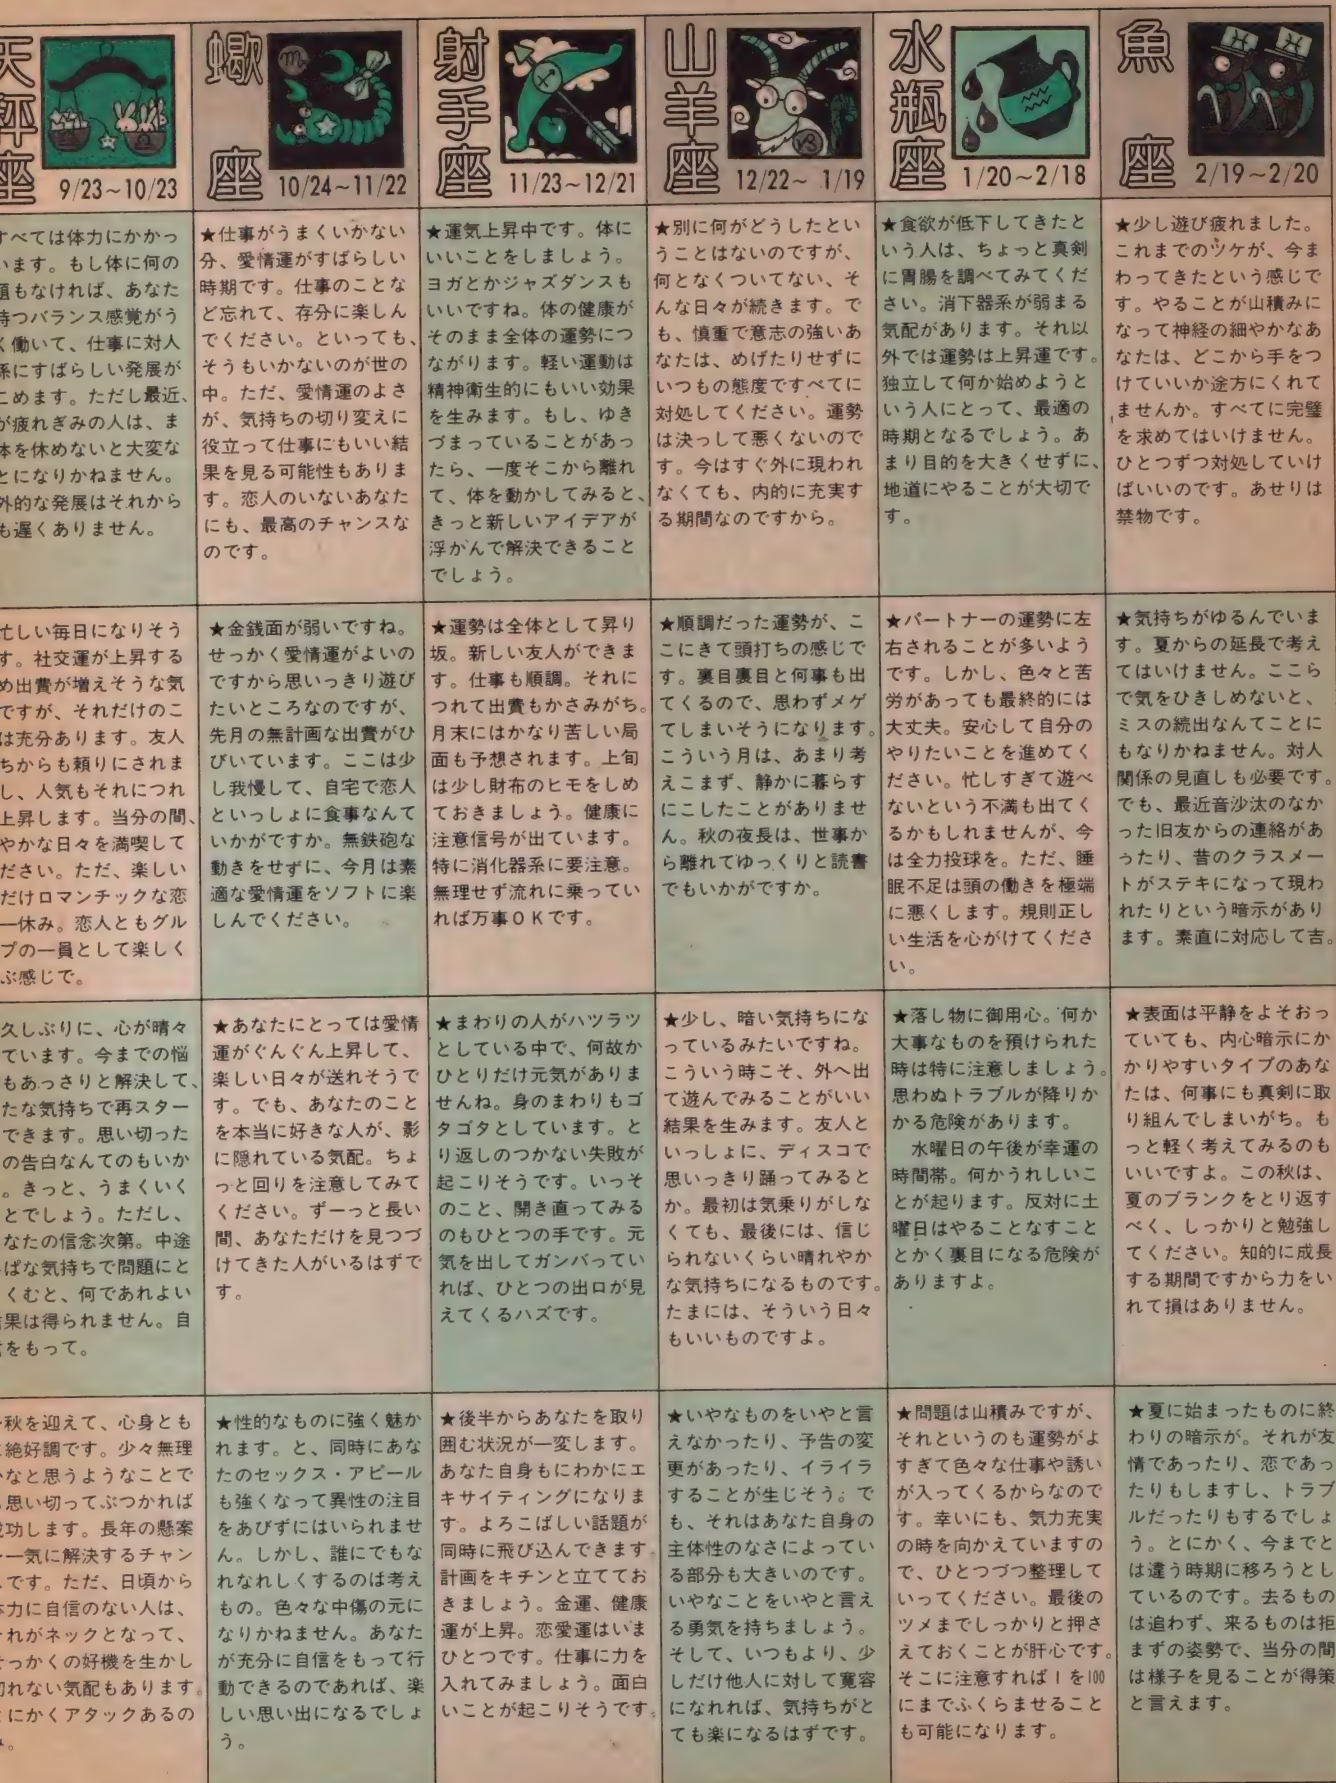 天秤座
9/23~10/23
蠍座
10/24~11/22
射手座
11/23~12/21
山羊座
12/22~ 1/19
水瓶座
1/20~2/18
魚座
2/19~2/20
すべては体力にかかっ
います。もし体に何の
題もなければ、あなた
持つバランス感覚がう
く働いて、仕事に対人
係にすばらしい発展が
こめます。ただし最近、
が疲れぎみの人は、ま
体を休めないと大変な
とになりかねません。
外的な発展はそれから
も遅くありません。
★仕事がうまくいかない
分、愛情運がすばらしい
時期です。仕事のことな
ど忘れて、存分に楽しん
でください。といっても、
そうもいかないのが世の
中。ただ、愛情運のよさ
が、気持ちの切り変えに
役立って仕事にもいい結
果を見る可能性もありま
す。恋人のいないあなた
にも、最高のチャンスな
のです。
★運気上昇中です。体に
いいことをしましょう。
ヨガとかジャズダンスも
いいですね。体の健康が
そのまま全体の運勢につ
ながります。軽い運動は
精神衛生的にもいい効果
を生みます。もし、ゆき
づまっていることがあっ
たら、一度そこから離れ
て、体を動かしてみると、
きっと新しいアイデアが
浮かんで解決できること
でしょう。
★別に何がどうしたとい
うことはないのですが、
何となくついてない、そ
んな日々が続きます。で
も、慎重で意志の強いあ
なたは、めげたりせずに
いつもの態度ですべてに
対処してください。運勢
は決っして悪くないので
す。今はすぐ外に現われ
なくても、内的に充実す
る期間なのですから。
★食欲が低下してきたと
いう人は、ちょっと真剣
に胃腸を調べてみてくだ
さい。消下器系が弱まる
気配があります。それ以
外では運勢は上昇運です。
独立して何か始めようと
いう人にとって、最適の
時期となるでしょう。あ
まり目的を大きくせずに、
地道にやることが大切で
す。
★少し遊び疲れました。
これまでのツケが、今ま
わってきたという感じで
す。やることが山積みに
なって神経の細やかなあ
なたは、どこから手をつ
けていいか途方にくれて
ませんか。すべてに完璧
を求めてはいけません。
ひとつずつ対処していけ
ばいいのです。あせりは
禁物です。
忙しい毎日になりそう
す。社交運が上昇する
め出費が増えそうな気
ですが、それだけのこ
は充分あります。友人
ちからも頼りにされま
し、人気もそれにつれ
上昇します。当分の間、
やかな日々を満喫して
ださい。ただ、楽しい
だけロマンチックな恋
一休み。恋人ともグル
プの一員として楽しく
ぶ感じで。
★金銭面が弱いですね。
せっかく愛情運がよいの
ですから思いっきり遊び
たいところなのですが、
先月の無計画な出費がひ
びいています。ここは少
し我慢して、自宅で恋人
といっしょに食事なんて
いかがですか。無鉄砲な
動きをせずに、今月は素
適な愛情運をソフトに楽
しんでください。
★運勢は全体として昇り
坂。新しい友人ができま
す。仕事も順調。それに
つれて出費もかさみがち。
月末にはかなり苦しい局
面も予想されます。上旬
は少し財布のヒモをしめ
ておきましょう。健康に
注意信号が出ています。
特に消化器系に要注意。
無理せず流れに乗ってい
れば万事OKです。
★順調だった運勢が、こ
こにきて頭打ちの感じで
す。裏目裏目と何事も出
てくるので、思わずメゲ
てしまいそうになります。
こういう月は、あまり考
えこまず、静かに暮らす
にこしたことがありませ
ん。秋の夜長は、世事か
ら離れてゆっくりと読書
でもいかがですか。
★パートナーの運勢に左
右されることが多いよう
です。しかし、色々と苦
労があっても最終的には
大丈夫。安心して自分の
やりたいことを進めてく
ださい。忙しすぎて遊べ
ないという不満も出てく
るかもしれませんが、今
は全力投球を。ただ、睡
眠不足は頭の働きを極端
に悪くします。規則正し
い生活を心がけてくださ
い。
★気持ちがゆるんでいま
す。夏からの延長で考え
てはいけません。ここら
で気をひきしめないと、
ミスの続出なんてことに
もなりかねません。対人
関係の見直しも必要です。
でも、最近音沙汰のなか
った旧友からの連絡があ
ったり、昔のクラスメー
トがステキになって現わ
れたりという暗示があり
ます。素直に対応して吉。
久しぶりに、心が晴々
ています。今までの悩
もあっさりと解決して、
たな気持ちで再スター
できます。思い切った
の告白なんてのもいか
。きっと、うまくいく
とでしょう。ただし、
なたの信念次第。中途
ぱな気持ちで問題にと
くむと、何であれよい
結果は得られません。自
信をもって。
★あなたにとっては愛情
運がぐんぐん上昇して、
楽しい日々が送れそうで
す。でも、あなたのこと
を本当に好きな人が、影
に隠れている気配。ちょ
っと回りを注意してみて
ください。ずーっと長い
間、あなただけを見つづ
けてきた人がいるはずで
す。
★まわりの人がハツラツ
としている中で、何故か
ひとりだけ元気がありま
せんね。身のまわりもゴ
タゴタとしています。と
り返しのつかない失敗が
起こりそうです。いっそ
のこと、開き直ってみる
のもひとつの手です。元
気を出してガンバってい
れば、ひとつの出口が見
えてくるハズです。
★少し、暗い気持ちにな
っているみたいですね。
こういう時こそ、外へ出
て遊んでみることがいい
結果を生みます。友人と
いっしょに、ディスコで
思いっきり踊ってみると
か。最初は気乗りがしな
くても、最後には、信じ
られないくらい晴れやか
な気持ちになるものです。
たまには、そういう日々
もいいものですよ。
★落し物に御用心。何か
大事なものを預けられた
時は特に注意しましょう。
思わぬトラブルが降りか
かる危険があります。
水曜日の午後が幸運の
時間帯。何かうれしいこ
とが起ります。反対に土
曜日はやることなすこと
とかく裏目になる危険が
ありますよ。
★表面は平静をよそおっ
ていても、内心暗示にか
かりやすいタイプのあな
たは、何事にも真剣に取
り組んでしまいがち。も
っと軽く考えてみるのも
いいですよ。この秋は、
夏のブランクをとり返す
べく、しっかりと勉強し
てください。知的に成長
する期間ですから力をい
れて損はありません。
秋を迎えて、心身とも
絶好調です。少々無理
かなと思うようなことで
思い切ってぶつかれば
成功します。長年の懸案
一気に解決するチャン
です。ただ、日頃から
体力に自信のない人は、
それがネックとなって、
せっかくの好機を生かし
切れない気配もあります。
とにかくアタックあるの
み。
★性的なものに強く魅か
れます。と、同時にあな
たのセックス・アピール
も強くなって異性の注目
をあびずにはいられませ
ん。しかし、誰にでもな
れなれしくするのは考え
もの。色々な中傷の元に
なりかねません。あなた
が充分に自信をもって行
動できるのであれば、楽
しい思い出になるでしょ
う。
★後半からあなたを取り
囲む状況が一変します。
あなた自身もにわかにエ
キサイティングになりま
す。よろこばしい話題が
同時に飛び込んできます。
計画をキチンと立ててお
きましょう。金運、健康
運が上昇。恋愛運はいま
ひとつです。仕事に力を
入れてみましょう。面白
いことが起こりそうです。
★いやなものをいやと言
えなかったり、予告の変
更があったり、イライラ
することが生じそう。で
も、それはあなた自身の
主体性のなさによってい
る部分も大きいのです。
いやなことをいやと言え
る勇気を持ちましょう。
そして、いつもより、少
しだけ他人に対して寛容
になれれば、気持ちがと
ても楽になるはずです。
★問題は山積みですが、
それというのも運勢がよ
すぎて色々な仕事や誘い
が入ってくるからなので
す。幸いにも、気力充実
の時を向かえていますの
で、ひとつづつ整理して
いってください。最後の
ツメまでしっかりと押さ
えておくことが肝心です。
そこに注意すれば1を100
にまでふくらませること
も可能になります。
★夏に始まったものに終
わりの暗示が。それが友
情であったり、恋であっ
たりもしますし、トラブ
ルだったりもするでしょ
う。とにかく、今までと
は違う時期に移ろうとし
ているのです。去るもの
は追わず、来るものは拒
まずの姿勢で、当分の間
は様子を見ることが得策
と言えます。